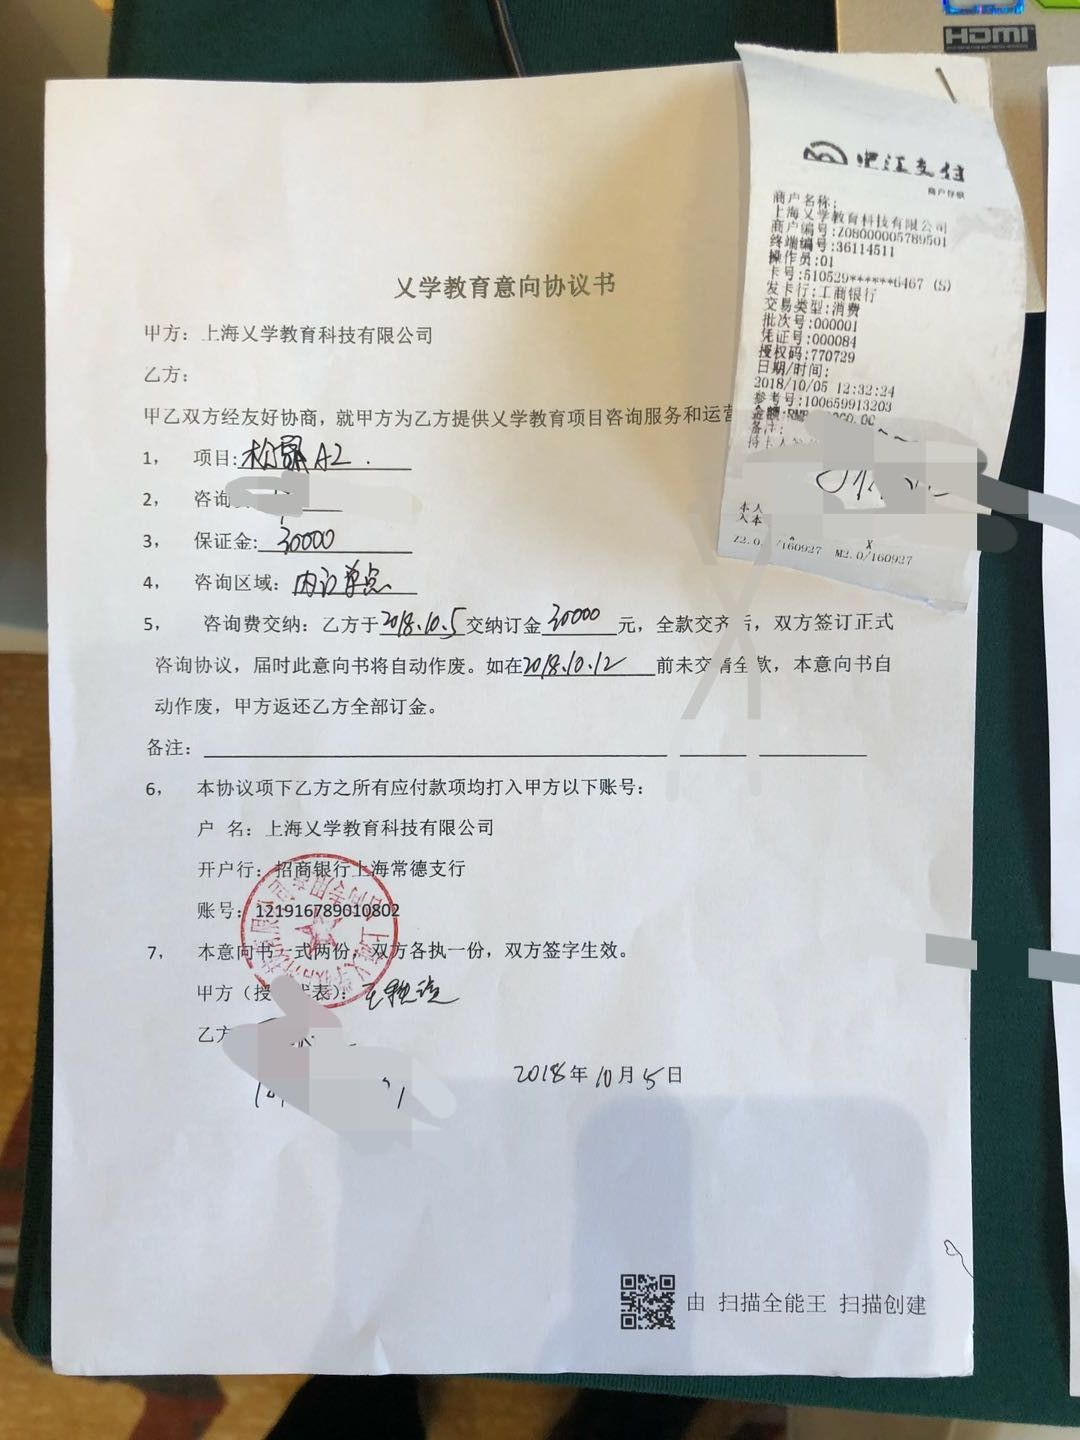 HDMI
支付
商户存根
商户名称:
上海乂学教育科技有限公司
商户编号:Z08000005789501
终端编号:36114511
操作员:01
卡号:510529******6467 (S)
发卡行:工商银行
交易类型:消费
批次号:000001
凭证号:000084
授权码:770729
日期/时间:
2018/10/05 12:32:24
参考号:100659913203
金额:RMB
备注:
持卡人
Z2.0 /160927 M2.0/160927
乂学教育意向协议书
甲方：上海乂学教育科技有限公司
乙方：
甲乙双方经友好协商，就甲方为乙方提供乂学教育项目咨询服务和运营
1， 项目: 松鼠A2.
2， 咨询
3， 保证金: 30000
4， 咨询区域：内订单点
5， 咨询费交纳：乙方于2018.10.5交纳订金30000元，全款交齐后，双方签订正式
咨询协议，届时此意向书将自动作废。如在2018.10.12前未交清全款，本意向书自
动作废，甲方返还乙方全部订金。
备注：
6， 本协议项下乙方之所有应付款项均打入甲方以下账号：
户 名：上海乂学教育科技有限公司
开户行：招商银行上海常德支行
账号：121916789010802
7， 本意向书一式两份，双方各执一份，双方签字生效。
甲方（授 代表）：
乙方
2018年10月5日
由 扫描全能王 扫描创建